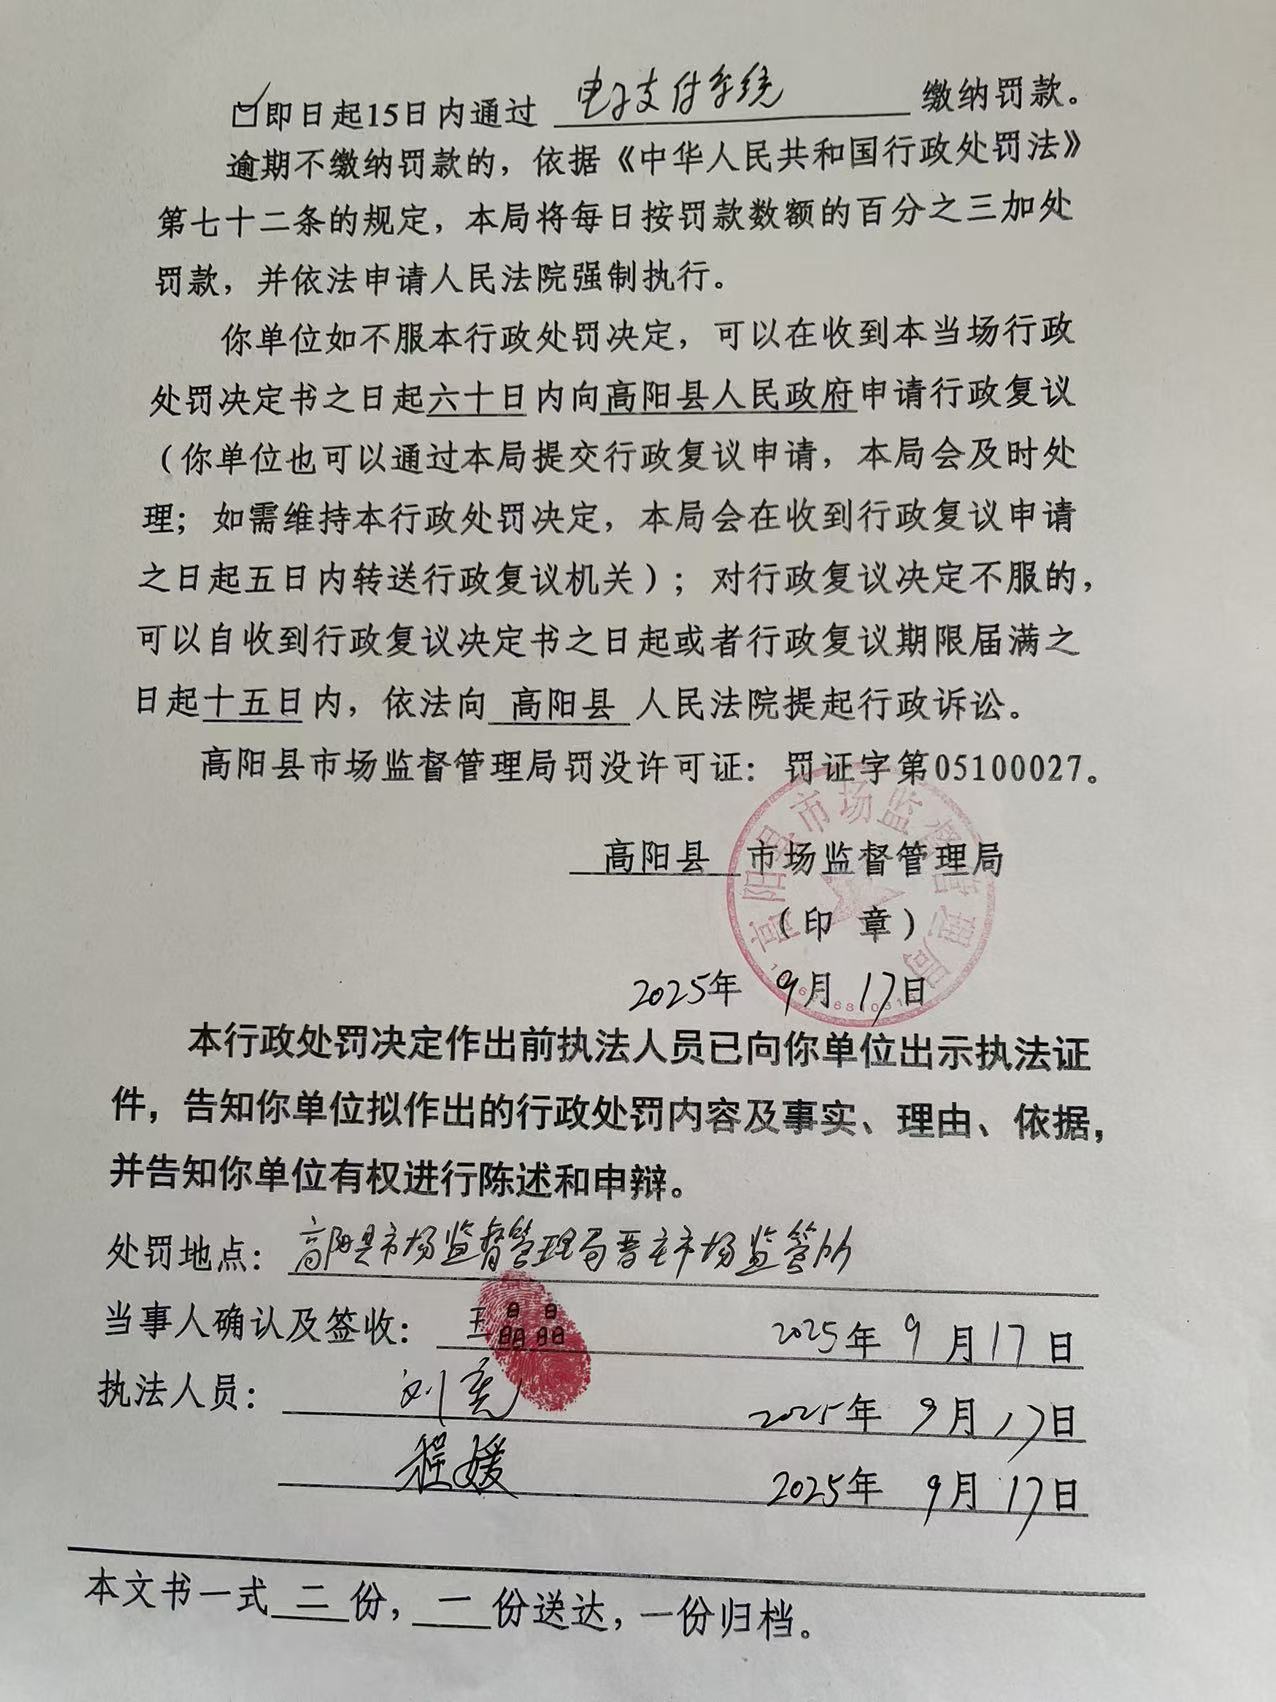 ☑即日起15日内通过 电子支付系统 缴纳罚款。
逾期不缴纳罚款的，依据《中华人民共和国行政处罚法》
第七十二条的规定，本局将每日按罚款数额的百分之三加处
罚款，并依法申请人民法院强制执行。
你单位如不服本行政处罚决定，可以在收到本当场行政
处罚决定书之日起六十日内向高阳县人民政府申请行政复议
（你单位也可以通过本局提交行政复议申请，本局会及时处
理；如需维持本行政处罚决定，本局会在收到行政复议申请
之日起五日内转送行政复议机关）；对行政复议决定不服的，
可以自收到行政复议决定书之日起或者行政复议期限届满之
日起十五日内，依法向 高阳县 人民法院提起行政诉讼。
高阳县市场监督管理局罚没许可证：罚证字第05100027。
高阳县 市场监督管理局
（印 章）
高阳县市场监督管理局
2025年 9月 17日
本行政处罚决定作出前执法人员已向你单位出示执法证
件，告知你单位拟作出的行政处罚内容及事实、理由、依据，
并告知你单位有权进行陈述和申辩。
处罚地点：高阳县市场监督管理局晋庄市场监管所
当事人确认及签收： 王 2025年 9月17日
执法人员： 刘亮 2025年 9月17日
程媛 2025年 9月17日
本文书一式 二 份， 一 份送达，一份归档。